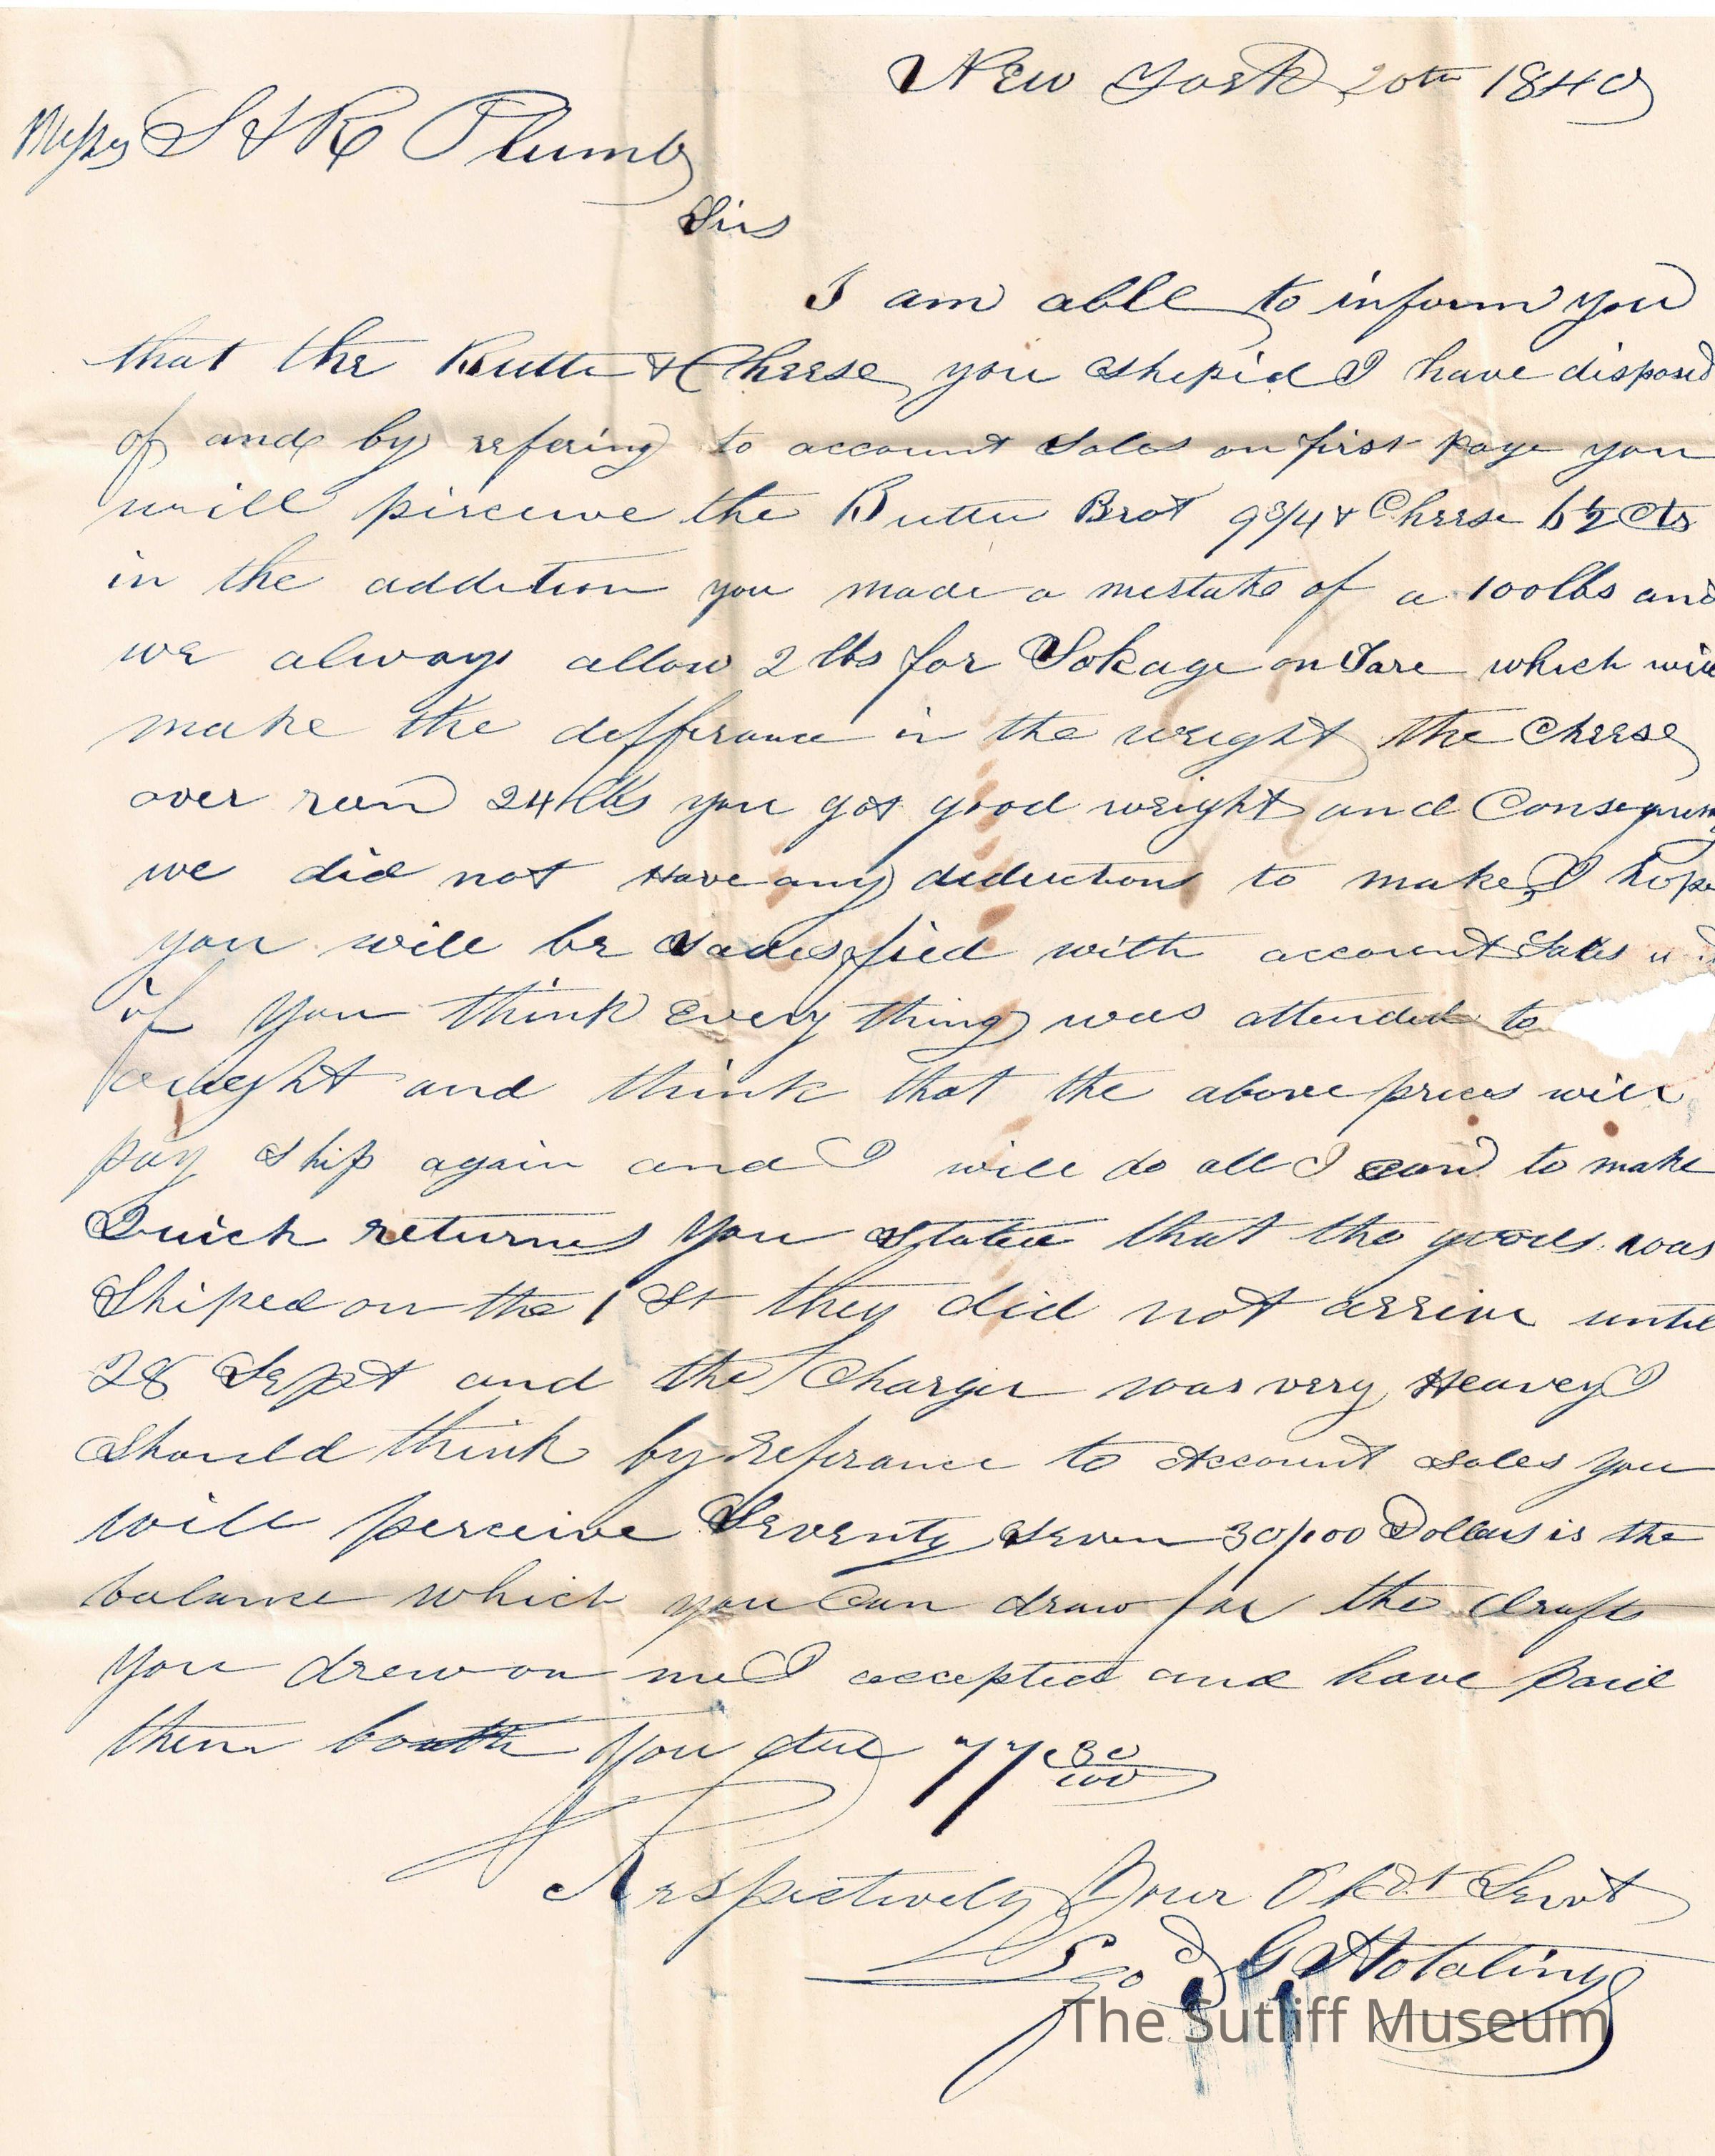 New York 20th 1840
Messrs S & R Plumb
Sirs
I am able to inform you
that the Butter & Cheese you shepid I have disposed
of and by refering to account Sales on first page you
will pirceive the Butter Brot 9 3/4 & Cheese 6 1/2 Cts
in the addition you made a mestake of a 100 lbs and
we always allow 2 lbs for Sokage on Tare which will
make the differance in the weight the Cheese
over run 24 lbs you got good weight and
we did not Have any diductions to make I hope
you will be Satisfied with account Sales
if you think Every thing was attended to
and think that the above prices will
pay ship again and I will do all I can to make
Quick returns you stated that the goods was
Shiped on the 1 St they did not arrive until
28 Sept and the Charges was very Heavey I
Should think by referance to Account Sales you
will perceive Seventy Seven 30/100 Dollars is the
balance which you Can draw for the drafts
you drew on me I accepted and have paid
them booth You due 77 30/100
Respectively Your Obdt Servt
Geo G Hotaling
The Sutliff Museum